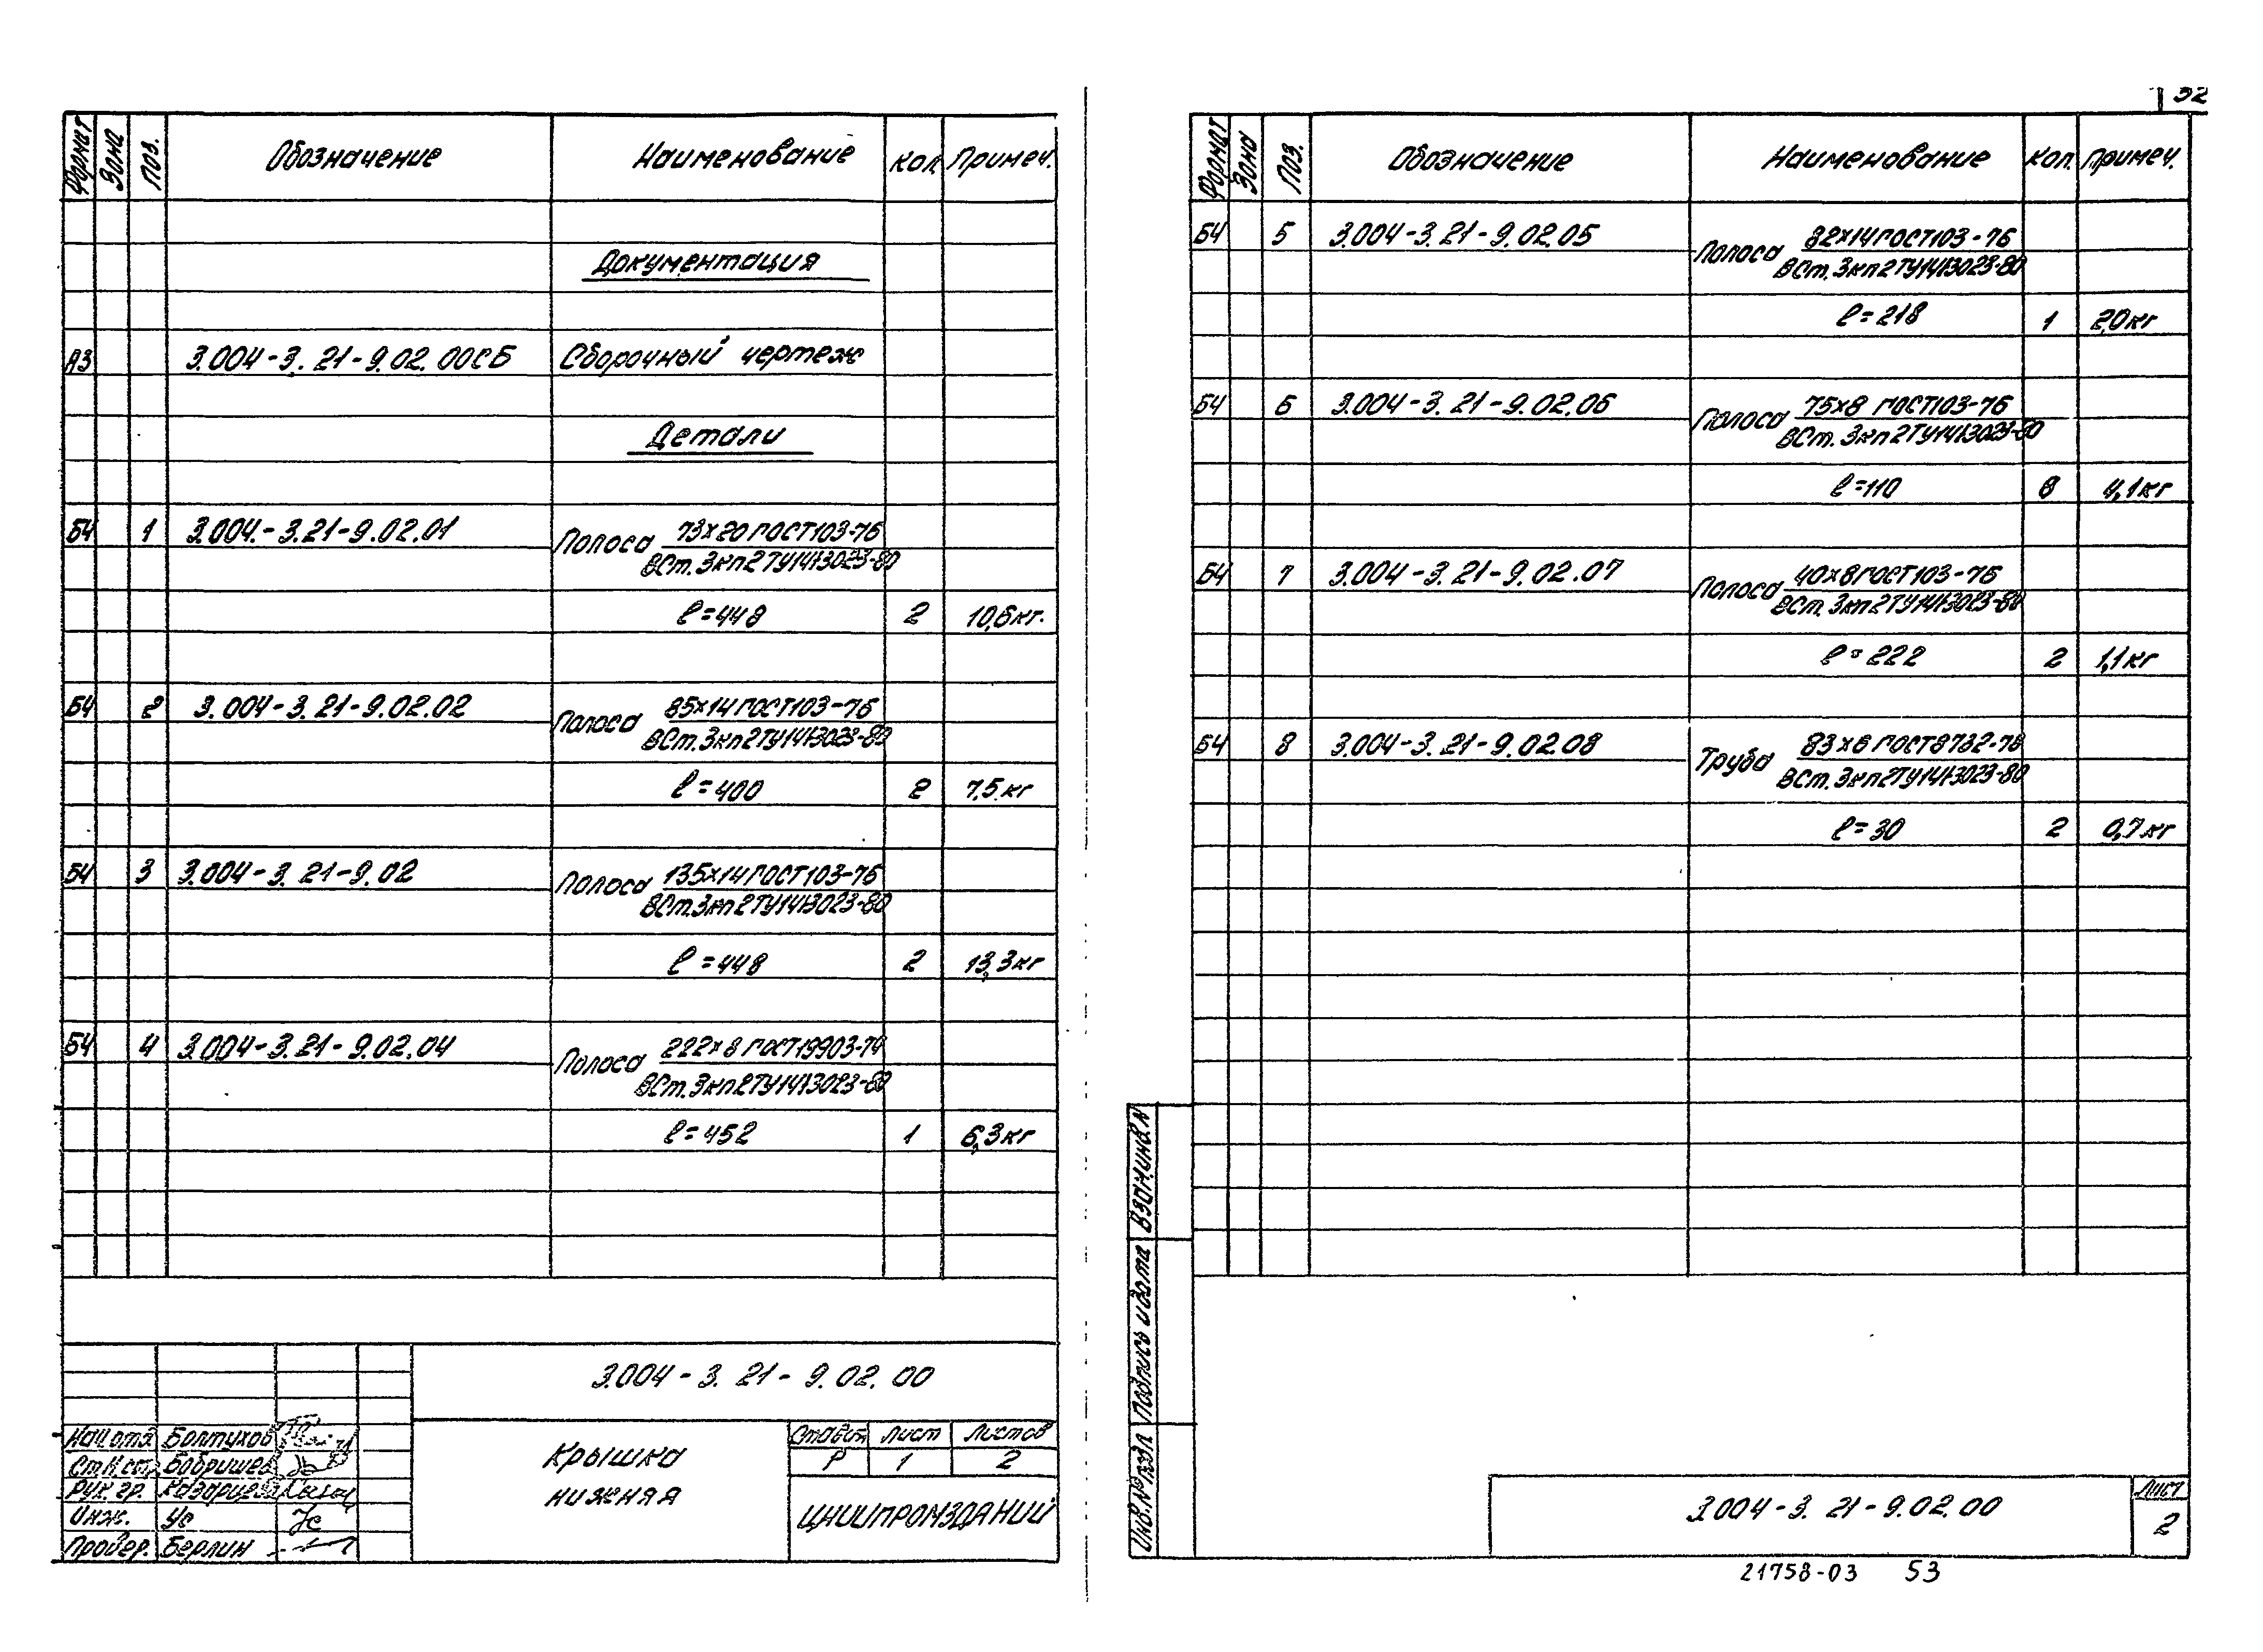 Формат Зона Поз. Обозначение Наименование Кол. Примеч.
Документация
А3 3.004-3. 21-9.02. 00СБ Сборочный чертеж
Детали
БЧ 1 3.004.-3.21-9.02.01 Полоса 73×20 ГОСТ103-76
ВСт.3кп2ТУ14-1-3023-80
ℓ=448 2 10,6 кг.
БЧ 2 3.004-3.21-9.02.02 Полоса 85×14 ГОСТ103-76
ВСт.3кп2ТУ14-1-3023-80
ℓ=400 2 7,5 кг
БЧ 3 3.004-3. 21-9.02 Полоса 135×14 ГОСТ103-76
ВСт.3кп2ТУ14-1-3023-80
ℓ=448 2 13,3 кг
БЧ 4 3.004-3.21-9.02.04 Полоса 222×8 ГОСТ19903-74
ВСт.3кп2ТУ14-1-3023-80
ℓ=452 1 6,3 кг
3.004-3. 21-9.02.00
Нач.отд. Болтухов
Ст.н.с. Бобришев
Рук. гр.
Инж. Ус
Провер. Берлин
Крышка
нижняя
Стадия Лист Листов
Р 1 2
ЦНИИПРОМЗДАНИЙ
52
Формат Зона Поз. Обозначение Наименование Кол. Примеч.
БЧ 5 3.004-3. 21-9.02.05 Полоса 82×14 ГОСТ103-76
ВСт.3кп2ТУ14-1-3023-80
ℓ=218 1 2,0 кг
БЧ 6 3.004-3. 21-9.02.06 Полоса 75×8 ГОСТ103-76
ВСт.3кп2ТУ14-1-3023-80
ℓ=110 8 4,1 кг
БЧ 7 3.004-3.21-9.02.07 Полоса 40×8 ГОСТ103-76
ВСт.3кп2ТУ14-1-3023-80
ℓ=222 2 1,1 кг
БЧ 8 3.004-3.21-9.02.08 Труба 83×6 ГОСТ8732-78
ВСт.3кп2ТУ14-1-3023-80
ℓ=30 2 0,7 кг
Взам.инв.N
Подпись и дата
Инв.№ подл
3.004-3. 21-9.02.00
Лист
2
21758-03 53